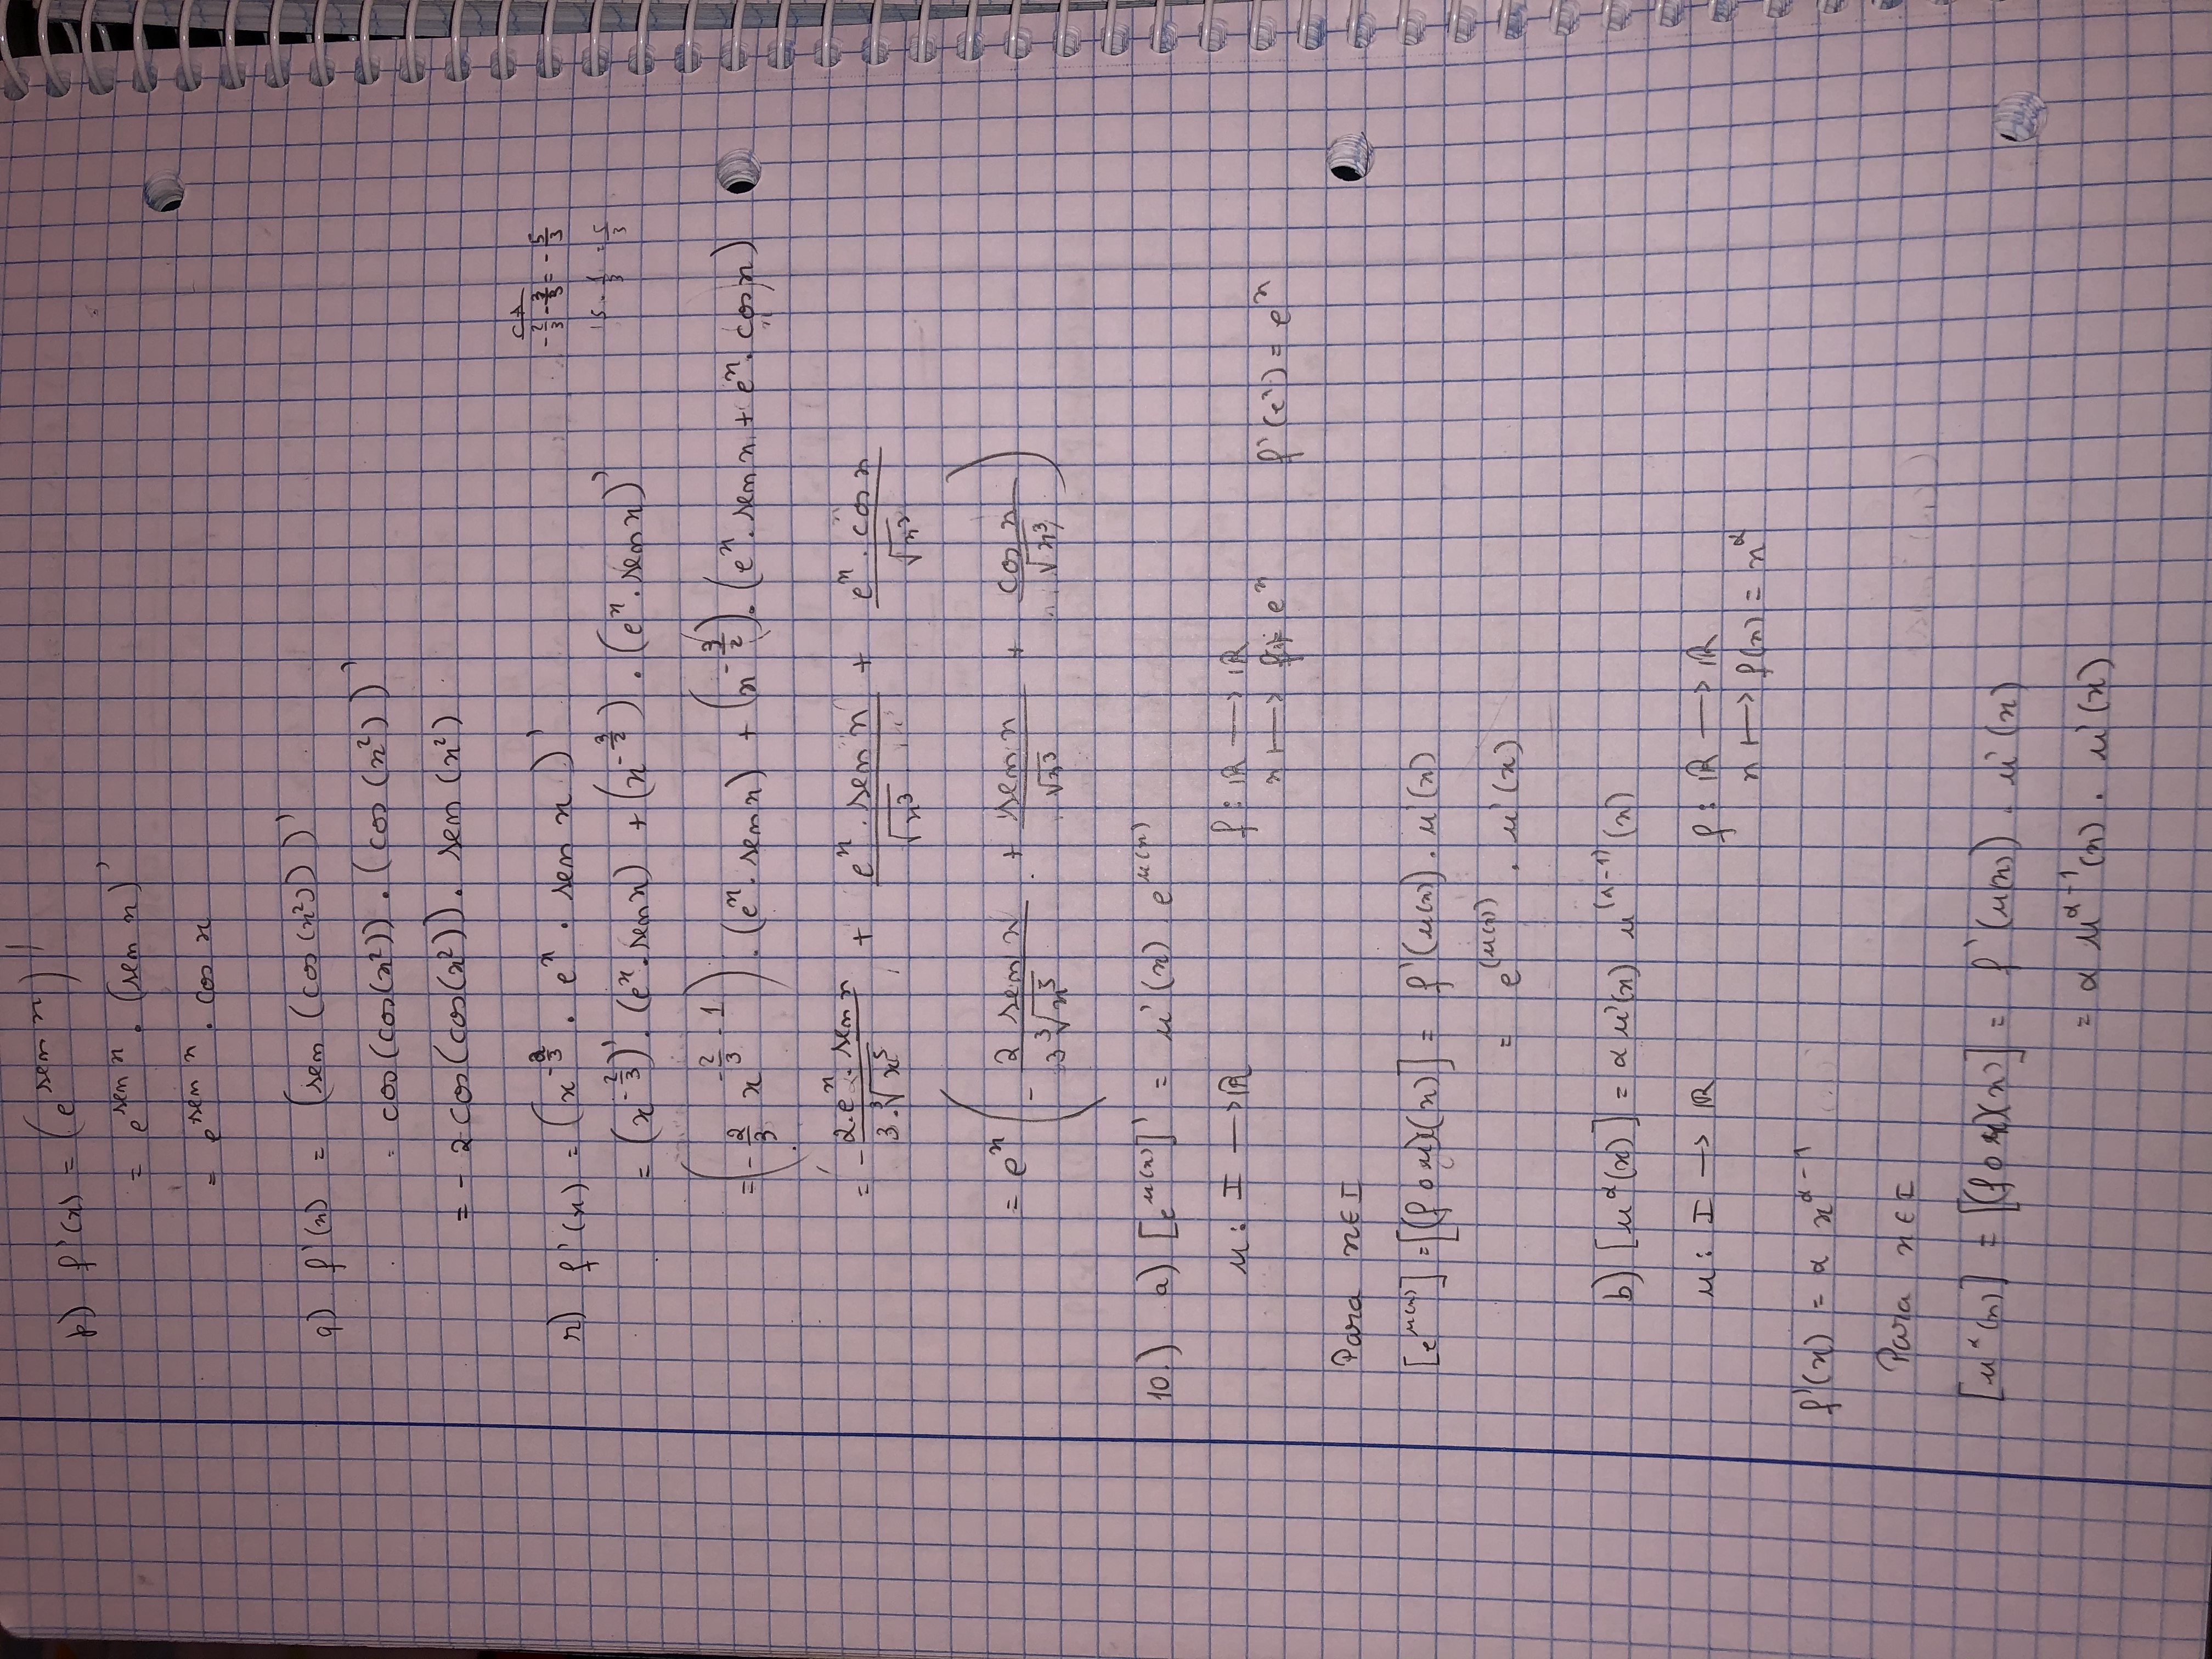 p) f'(x) = (e^{sen x})'
= e^{sen x} . (sen x)'
= e^{sen x} . cos x
q) f'(x) = (sen (cos(x²)))'
= cos(cos(x²)) . (cos (x²))'
= - 2 cos(cos(x²)). sen (x²)
CA
r) f'(x) = (x^{-2/3} . e^x . sen x)'
-2/3 - 3/3 = -5/3
= (x^{-2/3})' . (e^x . sen x) + (x^{-3/2}) . (e^x . sen x)'
= (-2/3 x^{-2/3 - 1}) . (e^x . sen x) + (x^{-3/2}) . (e^x . sen x + e^x . cos x)
= - 2.e^x . sen x / 3.∛x⁵ + e^x . sen x / √x³ + e^x . cos x / √x³
= e^x (- 2 sen x / 3 ∛x⁵ + sen x / √x³ + cos x / √x³)
10.) a) [e^{u(x)}]' = u'(x) e^{u(x)}
u : I → ℝ f : ℝ → ℝ
x ↦ e^x f'(e^x) = e^x
Para x ∈ I
[e^{u(x)}] = [(f o u)(x)] = f'(u(x)) . u'(x)
= e^{(u(x))} . u'(x)
b) [u^α(x)] = α u'(x) u^{(α-1)}(x)
u : I → ℝ f : ℝ → ℝ
x ↦ f(x) = x^α
f'(x) = α x^{α-1}
Para x ∈ I
[u^α(x)] = [(f o u)(x)] = f'(u(x)) . u'(x)
= α u^{α-1}(x) . u'(x)